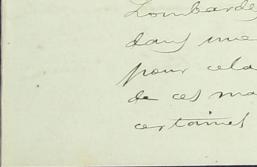 Lombarde
dans une
pour cela
de ces ma
certaines